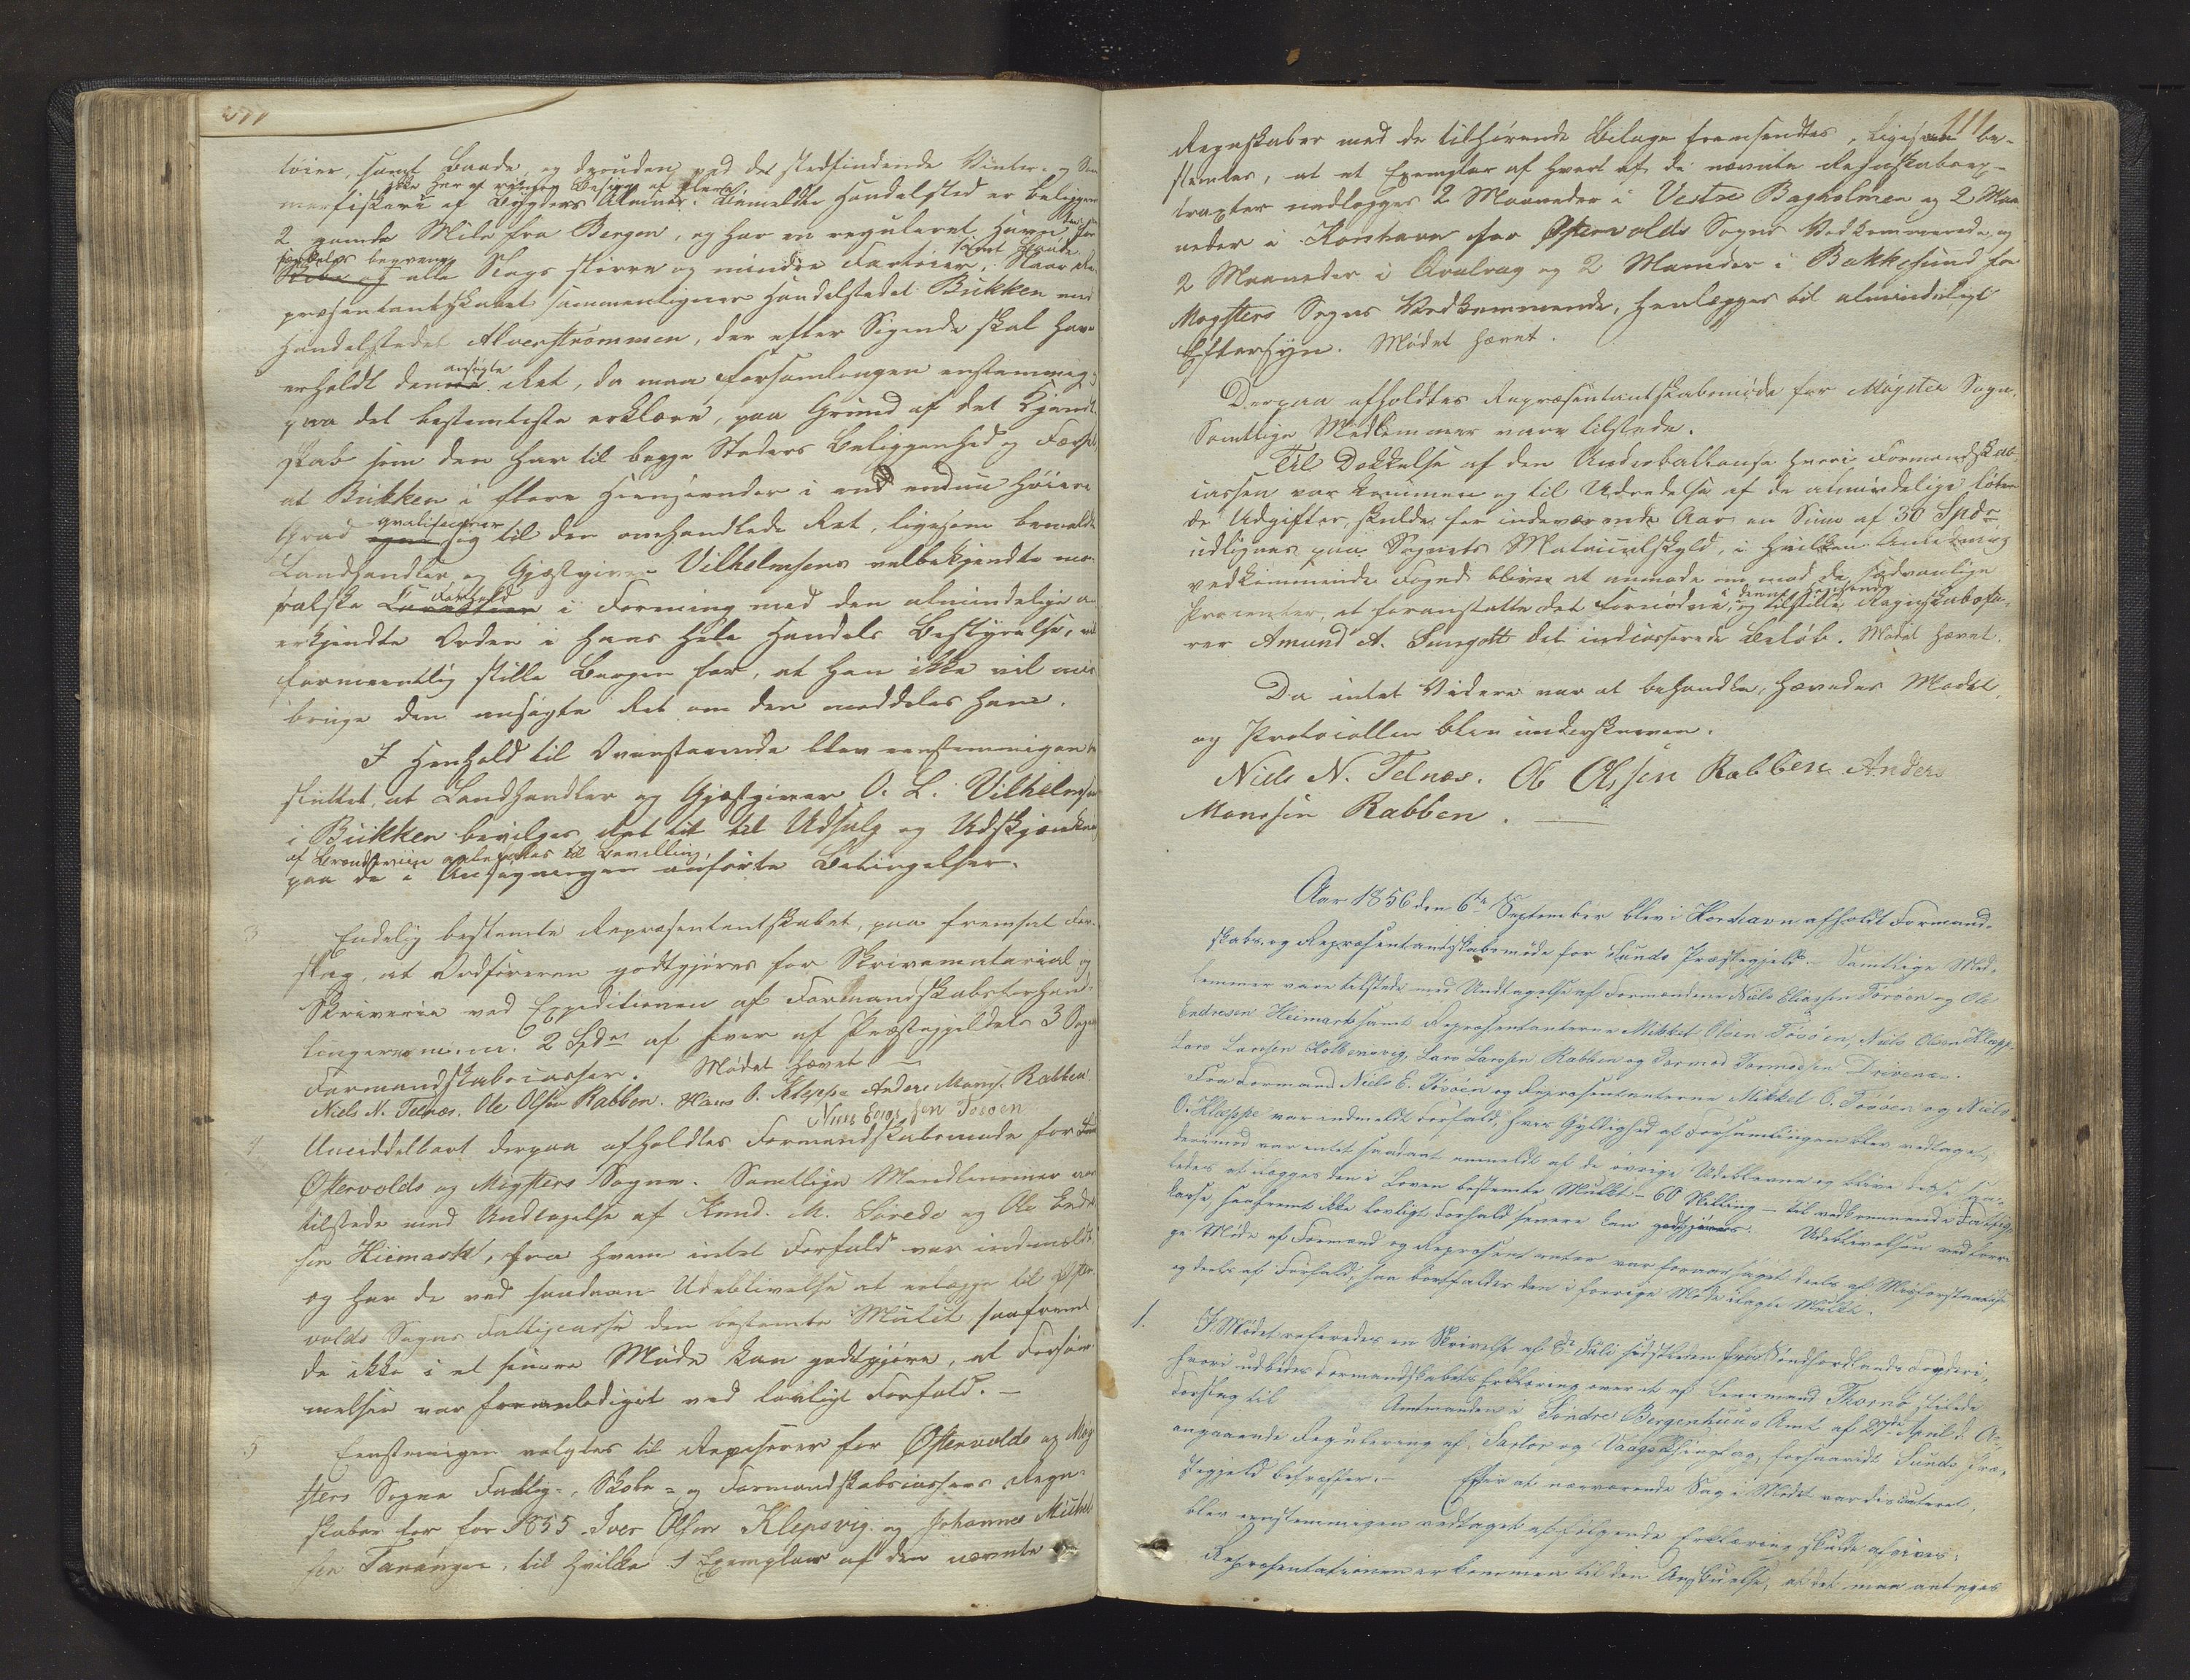 tøier, samt Baade, og desuden ved det stedfindende Vinter- og Som-
merfiskerie af Bygdens Almue. Bemeldte Handelsted er beliggen
2 gamle Mile fra Bergen, og har en reguleret Havn
alle Slags større og mindre Fartøier. Naar Re-
præsentantskabet sammenligner Handelstedet Bukken med
Handelstedet Alverstrømmen, der efter Sigende skal have
ansøgte
erholdt denne Ret, da maa Forsamlingen enstemmig
paa det bestemteste erklære, paa Grund af det Kjend-
skab som den har til begge Steders Beliggenhed og Færsel,
at Bukken i flere Henseender i end endnu høiere
qvalificerer
Grad egner sig til den omhandlede Ret, ligesom bemeldte
Landhandler og Gjæstgiver Vilhelmsens velbekjendte mo-
Forhold
ralske i Forening med den almindelige a-
erkjendte Orden i hans hele Handels Bestyrelse, vil
formeentlig stille Borgen for, at han ikke vil mis-
bruge den ansøgte Ret om den meddeles ham.
I Henhold til Ovenstaaende blev eenstemmigen be-
sluttet, at Landhandler og Gjæstgiver O. L. Vilhelmsen
i Bukken bevilges Ret til Udsalg og Udskjænkning
af Brændeviin anbefales til Bevilling,
paa de i Ansøgningen anførte Betingelser.
3 Endelig bestemte Repræsentantskabet, paa fremsat For-
slag, at Ordføreren godtgjøres for Skrivematerial og
Skriverie ved Expeditionen af Formandskabsforhand-
linger m. m. 2 Spd af hver af Præstegjeldets 3 Sogne
Formandskabscasser. Mødet hævet.
Niels N. Telnæs. Ole Olsen Rabben. Hans O. Kleppe Anders Mons. Rabben
Niels Eliassen Tosøen
4 Umiddelbart derpaa afholdtes Formandskabsmøde for
Østervolds og Møgsters Sogne. Samtlige Medlemmer var
tilstede med Undtagelse af Knud. M. Sørede og Ole Endre-
sen Hiimark, fra hvem intet Forfald var indmeldt
og har de ved saadan Udeblivelse at erlægge til Øster-
volds Sogns Fattigcasse den bestemte Mulct saafremt
de ikke i et senere Møde kan godtgjøre, at Forsøm-
melsen var foranlediget ved lovligt Forfald. —
5 Eenstemmigen valgtes til Revisorer for Østervolds og Møg-
sters Sogne Fattig-, Skole- og Formandskabscassers Regn-
skaber for 1855 Iver Olsen Klepsvig og Johannes Michel-
sen Tananger, til hvilke 1 Exemplar af den nævnte
111
Regnskaber med de tilhørende Bilage fremsendtes, ligesom be-
stemtes, at et Exemplar af hvert af de nævnte Regnskabsex-
tracter nedlægges 2 Maaneder i Vestre Bagholmen og 2 Maa-
neder i Korshavn for Østervolds Sogns Vedkommende, og
2 Maaneder i Qvalvaag og 2 Maaneder i Bakkesund for
Mogsters Sogns Vedkommende, henlægges til almindeligt
Eftersyn. Mødet hævet.
Derpaa afholdtes Repræsentantskabsmøde for Møgster Sogn.
Samtlige Medlemmer vare tilstede.
Til Dækkelse af den Underballance hvori Formandskabs-
cassen var kommen og til Udredelse af de almindelige løben-
de Udgifter, skulde for indeværende Aar en Sum af 30 Spdr
udlignes paa Sognets Matriculskyld, i hvilken Anledning
vedkommende Foged bliver at anmode om mod de sædvanlige
i denne Henseende
Procenter, at foranstalte det Fornødne, og tilstille Regnskabsfø-
rer Amund A. Sungott det indcasserede Beløb. Mødet hævet.
Da intet Videre var at behandle, hævedes Mødet,
og Protocollen blev underskreven.
Niels N. Telnæs. Ole Olssen Rabben Anders
Monssen Rabben.
Aar 1856 den 6te September blev i Korshavn afholdt Formand-
skabs- og Repræsentantskabsmøde for Sunds Præstegjeld. Samtlige Med-
lemmer vare tilstede med Undtagelse af Formændene Niels Eliassen Tosøen og Ole
Endresen Hiimark samt Repræsentanterne Mikkel Olsen Tosøen, Niels Olsen Kleppe
Lars Larssen Kolbensvig, Lars Larssen Rabben og Tormod Tormodsen Drivenæs.
Fra Formand Niels E. Tosøen og Repræsentanterne Mikkel O. Tosøen og Niels
O. Kleppe var indmeldt Forfald, hvis Gyldighed af Forsamlingen blev vedtaget,
derimod var intet saadant anmeldt af de øvrige Udeblevne og blive disse saa-
ledes at ilægges den i Loven bestemte Mulkt — 60 Skilling — til vedkommende Fattig-
kasse, saafremt ikke lovligt Forfald senere kan godtgjøres. Udeblivelsen ved forri-
ge Møde af Formænd og Repræsentanter var foraarsaget deels af Misforstaaelse
og deels af Forfald, saa bortfalder den i forrige Møde ilagte Mulkt.
1. I Mødet refereredes en Skrivelse af 8de Juli sidstleden fra Søndhordlands Fogderi,
hvori udbedes Formandskabets Erklæring over et af Lensmand Thorsnæs stilede
Forslag til Amtmanden i Søndre Bergenhuus Amt af 27de April d. A.
angaaende Regulering af Sartor og Vaags Thinglag, forsaavidt Sunds Præ-
stegjeld betræffer. — Efter at nærværende Sag i Mødet var discuteret,
blev eenstemmigen vedtaget at følgende Erklæring skulde afgives:
Repræsentationen er kommen til den Anskuelse, at det maa antages